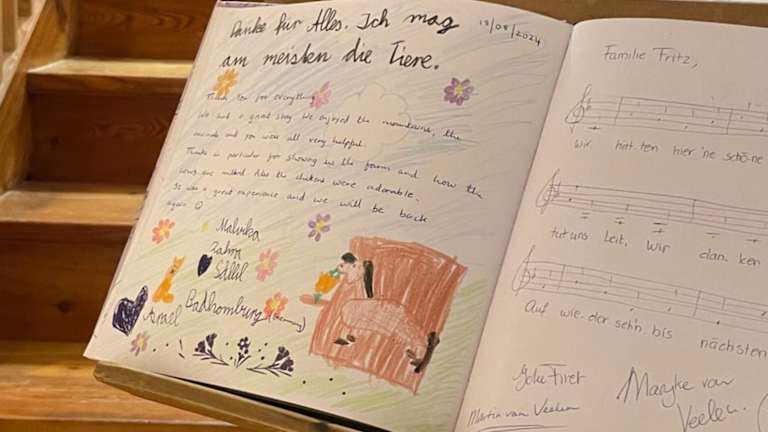 Danke für Alles. Ich mag
18/08/2024
am meisten die Tiere.
Thank you for everything
We had a great stay. We enjoyed the mountains, the
and you were all very helpful.
Thanks in particular for showing us the farm and how the
cows are milked. Also the chickens were adorable.
It was a great experience and we will be back
again
Malvika
Zahra
Sahil
Badhomburg (Germany)
Familie Fritz,
wir hat-ten hier 'ne schö-ne
tut uns Leit, Wir dan-ken
Auf wie-der-seh'n bis nächsten
Martin van Veelen
Maryke van
Veelen.